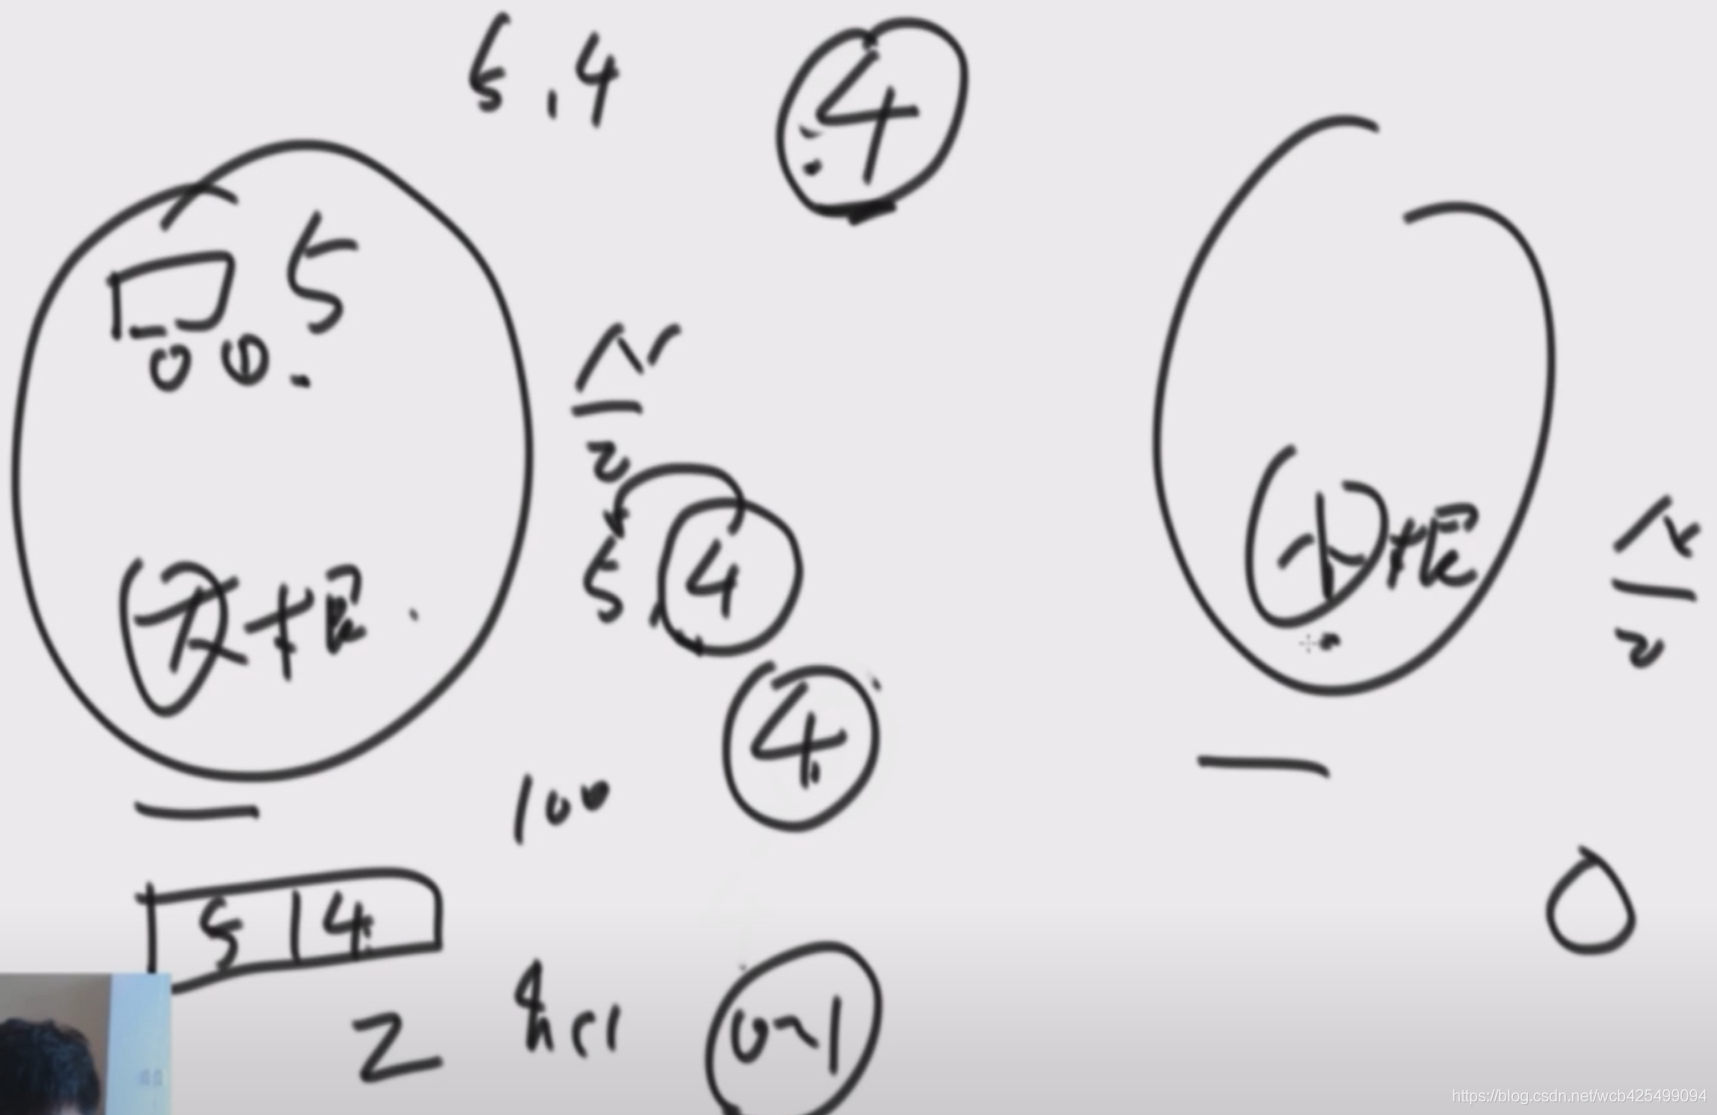 5,4
4
5
N
2
5,4
大根
小根
N
2
4
100
5 4
2
0~1
0
https://blog.csdn.net/wcb425499094